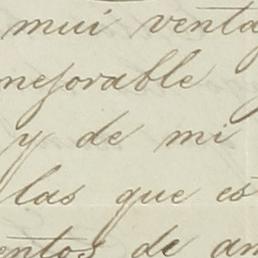 mui venta
mejorable
y de mi
las que es
entos de am